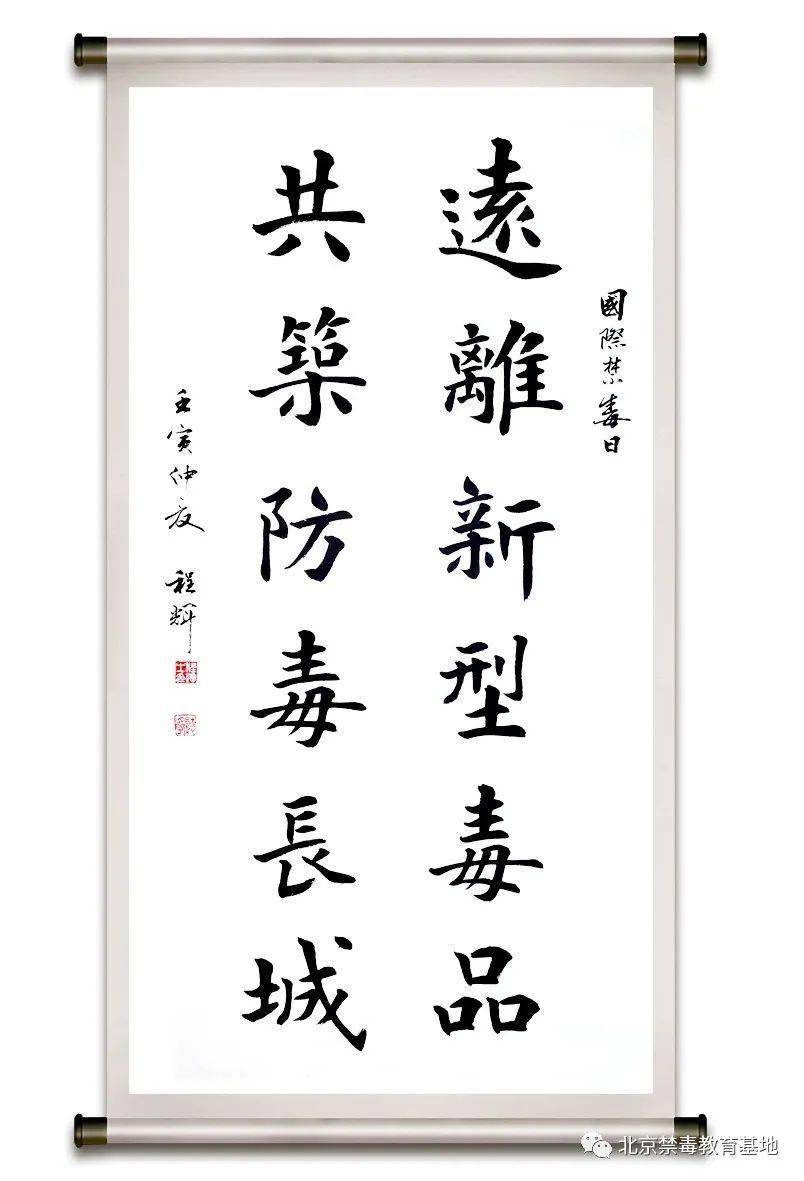 國際禁毒日
遠離新型毒品
共築防毒長城
壬寅仲夏 程輝
北京禁毒教育基地